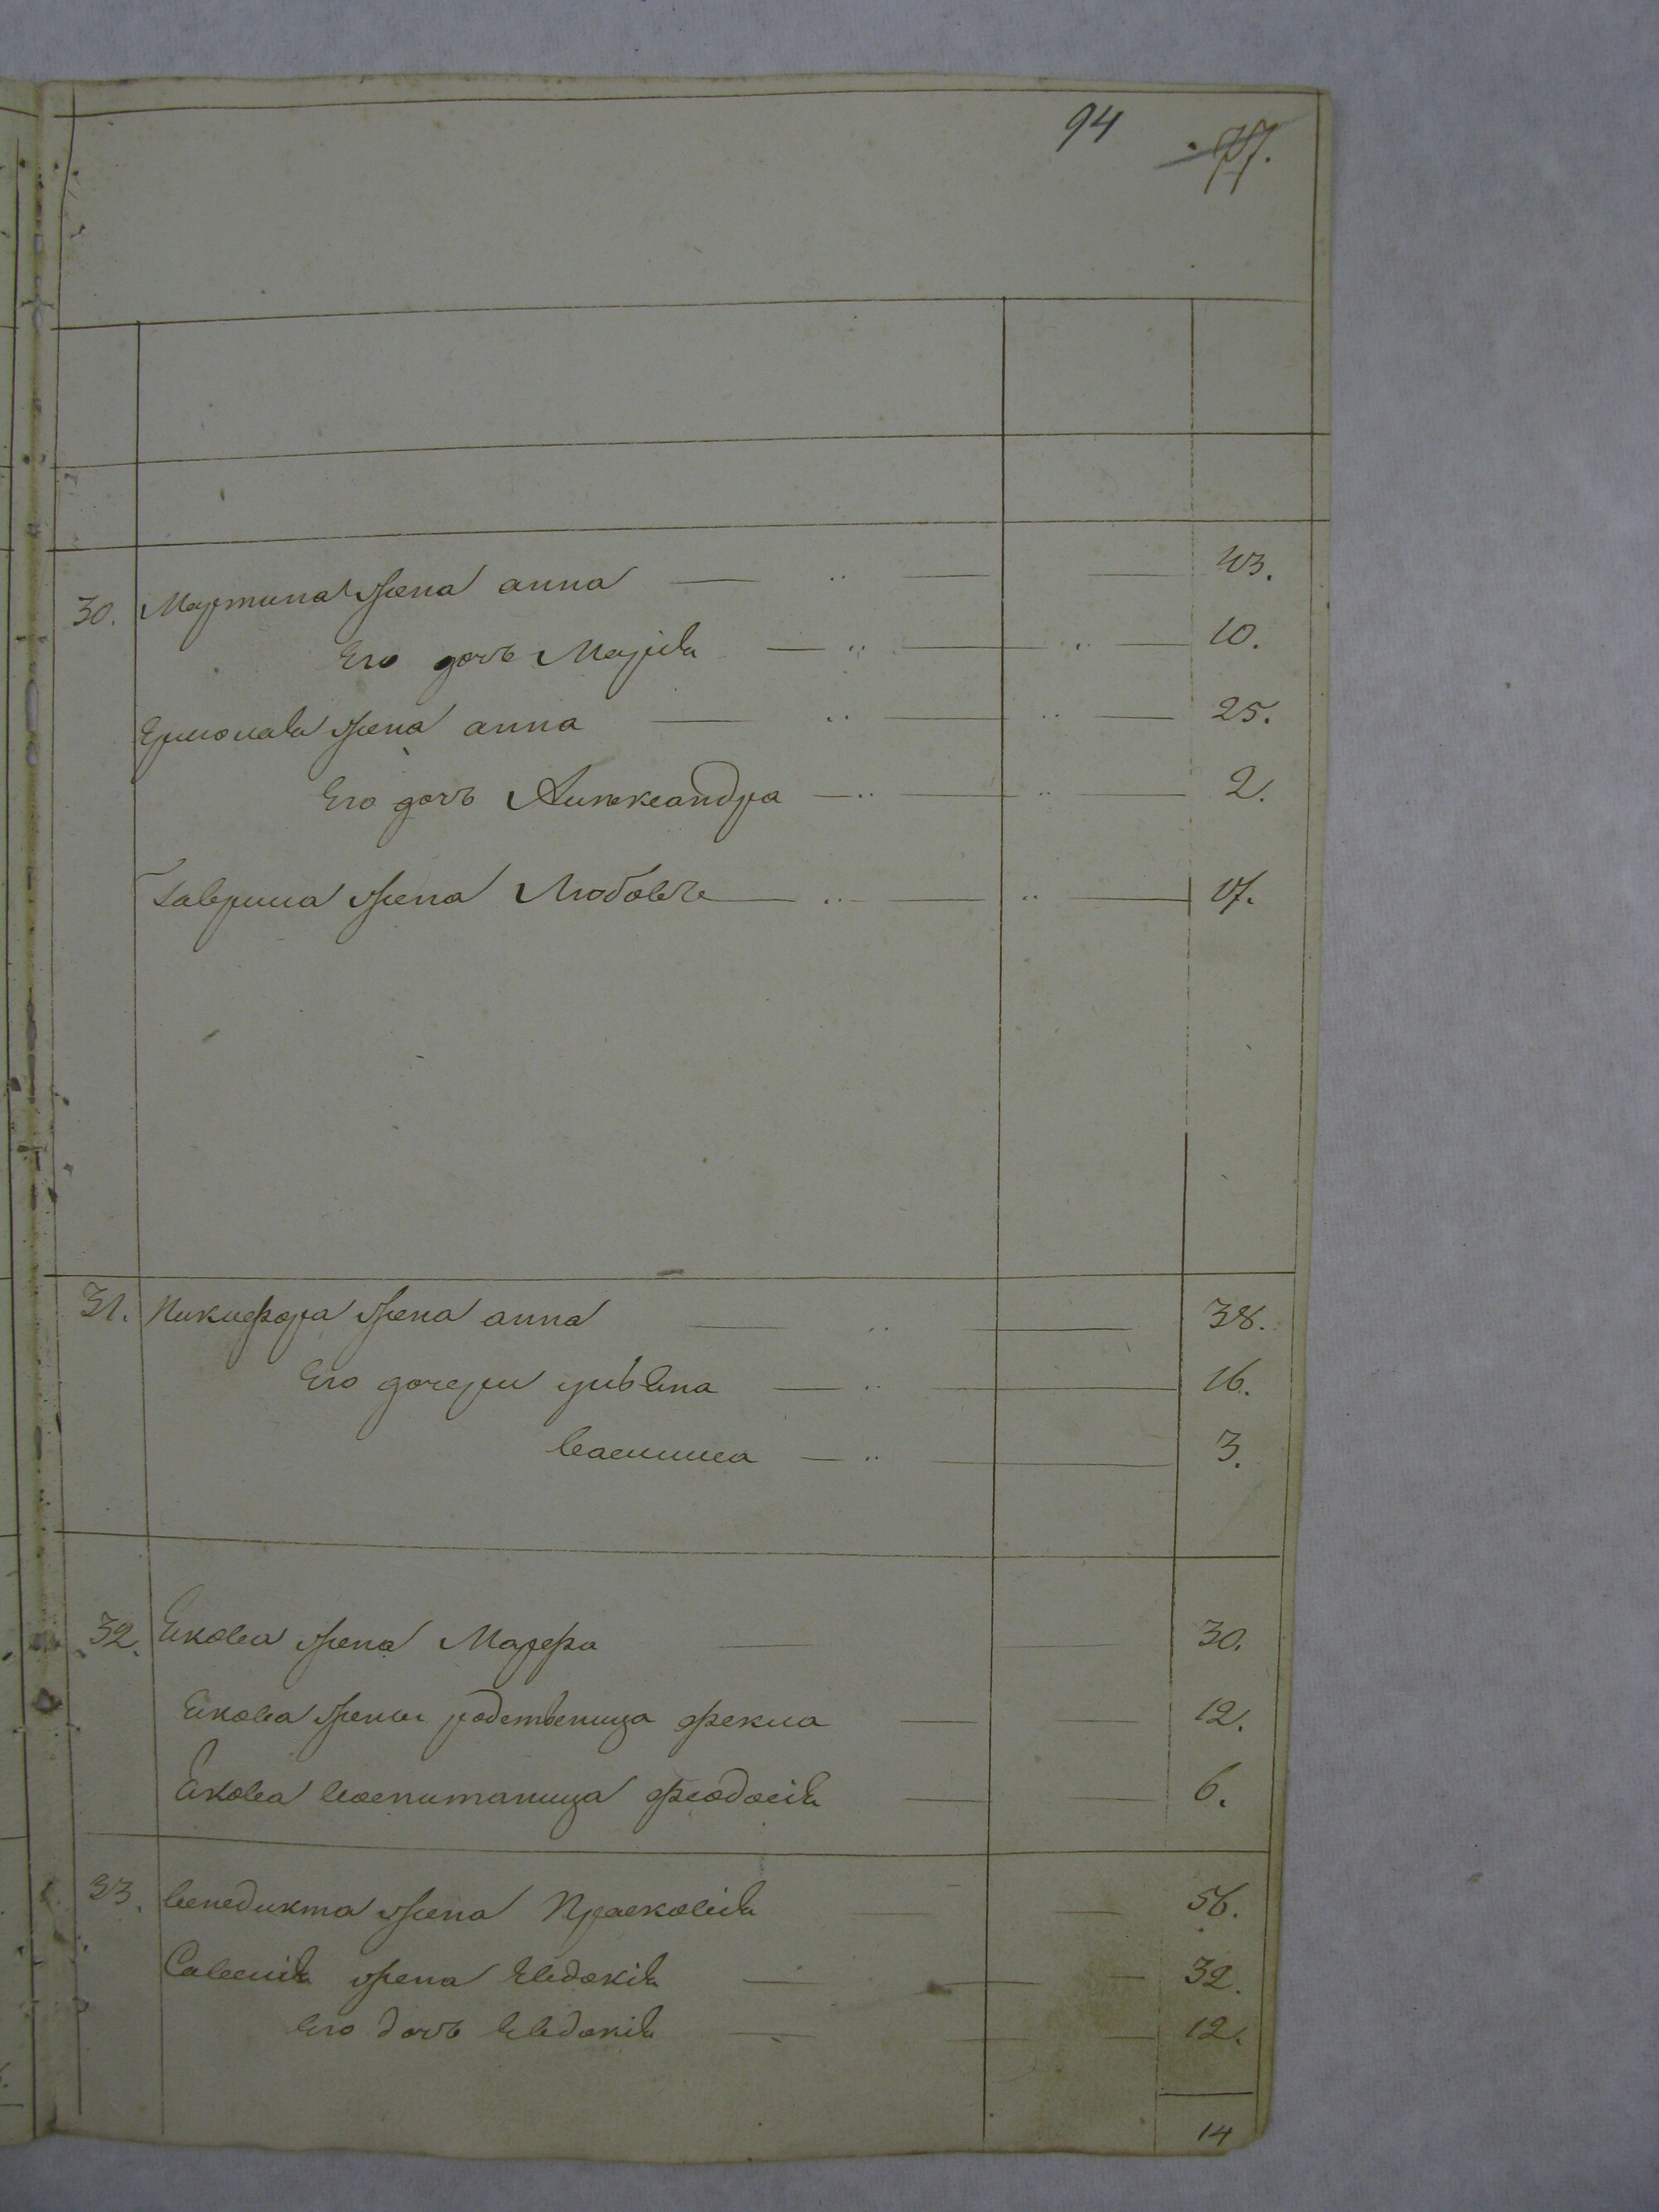 94 77.
30. Мартина жена анна 43.
Его дочь Марія 10.
Ермолая жена анна 25.
Его дочь Александра 2.
Гаврила жена Любовь 17.
31. Никифора жена анна 38.
Его дочери 16.
Васили́са 3.
32. Якова жена Марфа 30.
Якова жены родственица фекла 12.
Якова воспитаница феодосія 6.
33. венедикта жена Прасковія 56.
Савелія жена Евдокія 32.
Его дочь Евдокія 12.
14